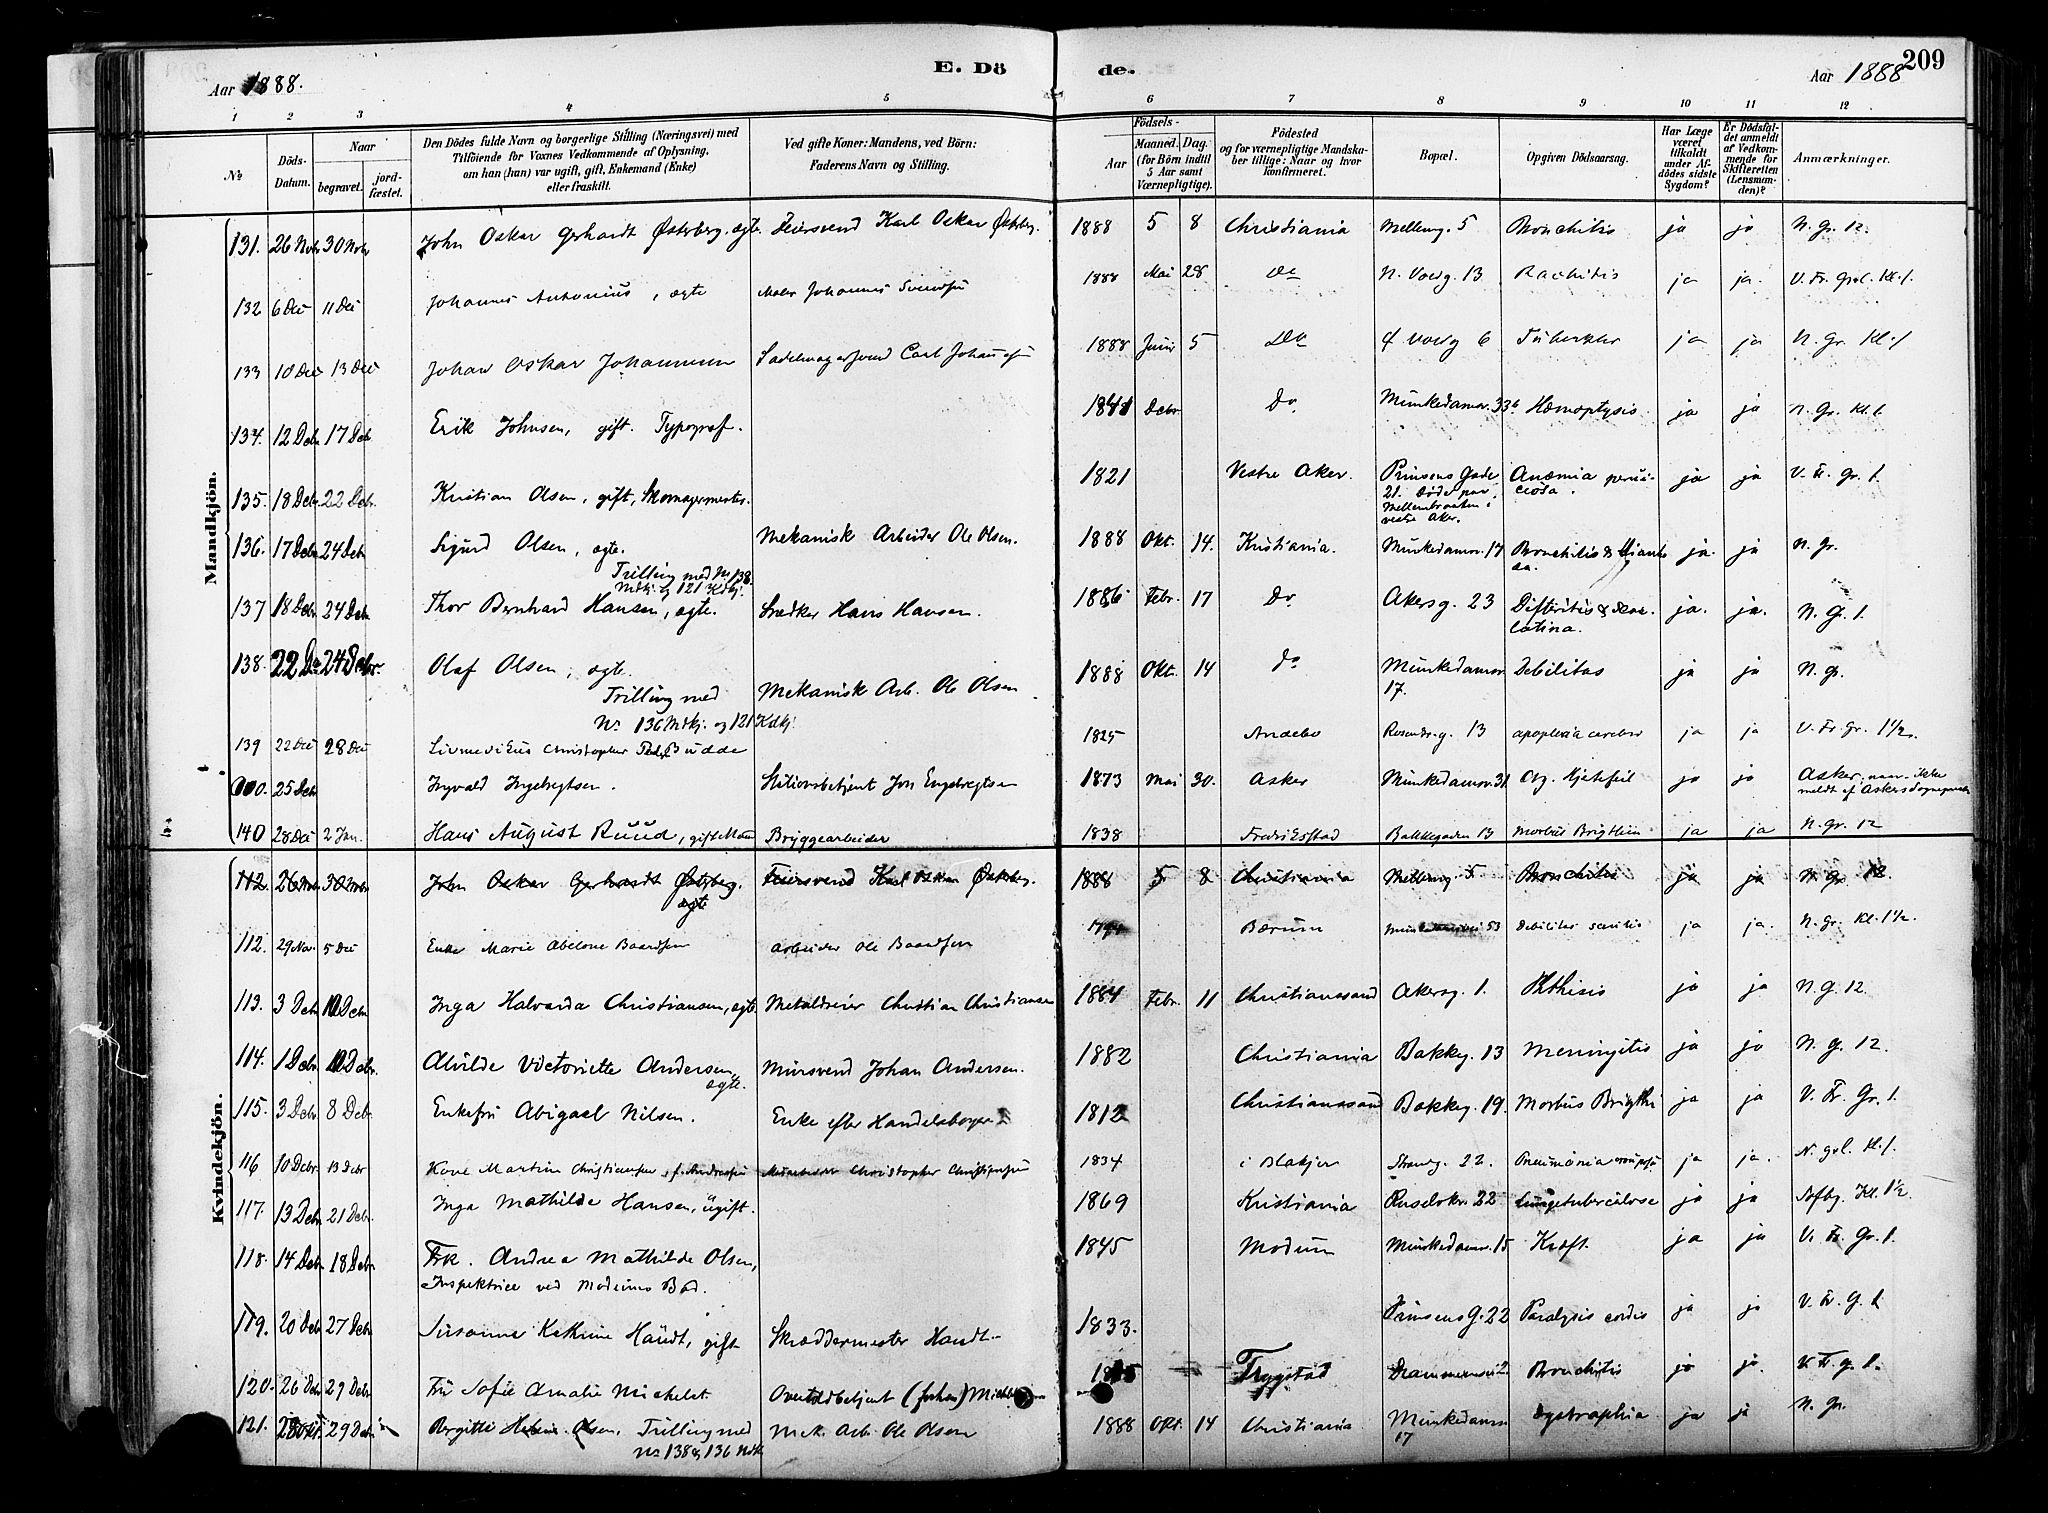 Aar 1888. E. Döde. Aar 1888 209
1 2 3 4 5 6 7 8 9 10 11 12
No
Döds-Datum.
Naar begravet. jordfæstet.
Den Dödes fulde Navn og borgerlige Stilling (Næringsvei) med
Tilföiende for Voxnes Vedkommende af Oplysning,
om han (hun) var ugift, gift, Enkemand (Enke)
eller fraskilt.
Ved gifte Koner: Mandens, ved Börn:
Faderens Navn og Stilling.
Födsels-
Aar Maaned. Dag.
(for Börn indtil
5 Aar samt
Værnepligtige).
Födested
og for værnepligtige Mandska-
ber tillige: Naar og hvor
konfirmeret.
Bopæl.
Opgiven Dödsaarsag.
Har Læge
været
tilkaldt
under Af-
dödes sidste
Sygdom?
Er Dödsfal-
det anmeldt
af Vedkom-
mende for
Skifteretten
(Lensman-
den)?
Anmærkninger.
Mandkjön.
131. 26 Nobr 30 Nobr John Oskar Gerhardt Østerberg. ægte. Feiersvend Karl Oskar Østerberg. 1888 5 8 Christiania Mellemg. 5 Bronchitis ja ja N. Gr. 12.
132 6 Dec 11 Dec Johannes Antonius, ægte Maler Johannes Svendsen 1888 Mai 28 Do N. Voldg. 13 Rachitis ja ja. V. Fr. Grvl. Kl. 1.
133 10 Dec 13 Dec Johan Oskar Johannesen Sadelmagersvend Carl Johansen 1888 Juni 5 Do Voldg 6 Tuberkler ja ja N. Gr. Kl. 1
134. 12 Debr 17 Deb Erik Johnsen, gift. Typograf. 1841 Debr Do Munkedamsv. 33b Hæmoptysis ja ja N. Gr. Kl. 1.
135. 18 Debr 22 Debr. Kristian Olsen, gift, Skomagermester. 1821 Vestre Aker. Prinsens Gade
21. døde paa
Mellembraaten i
vestre Aker. Anæmia perni-
ciosa. ja ja V. Fr. Gr. 1.
136. 17 Debr 24 Debr Sigurd Olsen, ægte.
Trilling med No 138
Mdkj. og 121 Kdkj. Mekanisk Arbeider Ole Olsen. 1888 Okt. 14. Kristiania. Munkedamsv. 17 Bronchitis ja. ja N. Gr.
137 18 Debr 24 Debr Thor Bernhard Hansen, ægte. Snedker Hans Hansen. 1886 Febr. 17 Do Akersg. 23 Difteritis & Scar-
latina. ja. ja. N. G. 1.
138. 22 De 24 Debr. Olaf Olsen, ægte.
Trilling med
No 136 Mdkj. og 121 Kdkj. Mekanisk Arb. Ole Olsen 1888 Okt. 14 Do Munkedamsv.
17. Debilitas ja ja N. Gr.
139 22 Dec 28 Dec Christopher Budde 1825 Andebo 13 apoplexia cerebri ja ja V. Fr. Gr. 1½.
000. 25 Debr Ingvald Ingebregtsen. Stationsbetjent Jon Engebregtsen 1873 Mai 30. Asker Munkedamsv. 31 Org. Hjertefeil ja ja Asker
meldt af Askers Sognepræst
140 28 Dec 2 Jan. Hans August Ruud, gift Mand Bryggearbeider 1838 Fredrikstad Bakkegaden 13 Morbus Brigthii ja ja N. gr. 12
Kvindekjön.
112. 26 Nobr. 30 Nobr. John Oskar Gerhardt Østerberg.
ægte Feiersvend Karl Oskar Østerberg. 1888 5 8 Christiania Mellemg. 5 Bronchitis ja ja N. Gr. 12.
112. 29 Nov. 5 Dec Enke Marie Abelone Baardsen arbeider Ole Baardsen Bærum 53 Debilitas senilis ja ja. N. Gr. Kl. 1½.
113. 3 Debr 10 Debr Inga Halvarda Christiansen, ægte. Metaldreier Christian Christiansen 1884 Febr. 11 Christianssand Akersg. 1. Phthisis ja ja N. G. 12
114. 1 Debr 10 Debr. Alvilde Victoriette Andersen,
ægte. Mursvend Johan Andersen. 1882 Christiania Bakkeg. 13 Meningitis ja ja N. G. 12.
115. 3 Debr 8 Debr Enkefru Abigael Nilsen. Enke efter Handelsborger 1812 Christianssand Bakkeg. 19. Morbus Brigthii ja ja V. Fr. Gr. 1.
116 10 Debr. 13 Debr Kone Martine Christiansen, f. Andreasen Christopher Christiansen 1834 i Blakjer Strandg. 22. Pneumonia ja ja. N. gvl. Kl. 1.
117. 13 Debr 21 Debr. Inga Mathilde Hansen, ugift. 1869 Kristiania Ruselökv. 22 Lungetuberculose ja ja Kl. 1½.
118. 14 Debr 18 Debr Frk. Andrea Mathilde Olsen,
Inspektrice ved Modums Bad. 1845 Modum Munkedamsv. 15 Kræft. ja ja V. Fr. Gr. 1.
119. 20 Deb 27 Debr Susanna Kathrine Haudt, gift Skræddermester Haudt 1833. Prinsens G. 22 Paralysis cordis ja ja V. Fr. G. 1
120. 26 Debr 29 Debr Fru Sofie Amalie Michelet Overtoldbetjent Trygstad Drammensvei Bronchitis ja ja. V. Fr. g. 1.
121. 29 Debr Birgitte Olsen, Trilling med
No 138 & 136 Mdk. Mek. Arb. Ole Olsen 1888 Okt. 14 Christiania Munkedamsv
17 Dystrophia ja ja N. Gr.